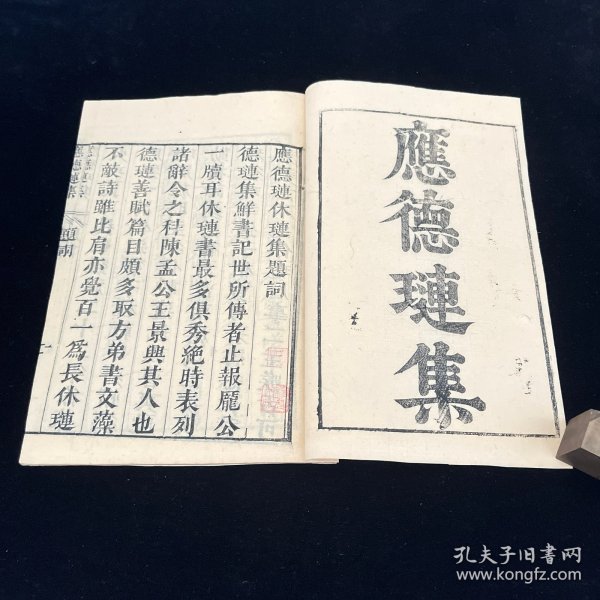 應德璉集
應德璉休璉集題詞
德璉集鮮書記世所傳者止報龐公
一牘耳休璉書最多俱秀絶時表列
諸辭令之科陳孟公王景興其人也
德璉善賦篇目頗多取方弟書文藻
不敵詩雖比肩亦覺百一爲長休璉
孔夫子旧書网
www.kongfz.com